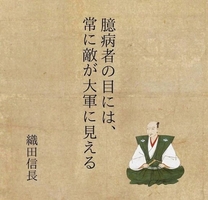 臆病者の目には、
常に敵が大軍に見える
織田信長